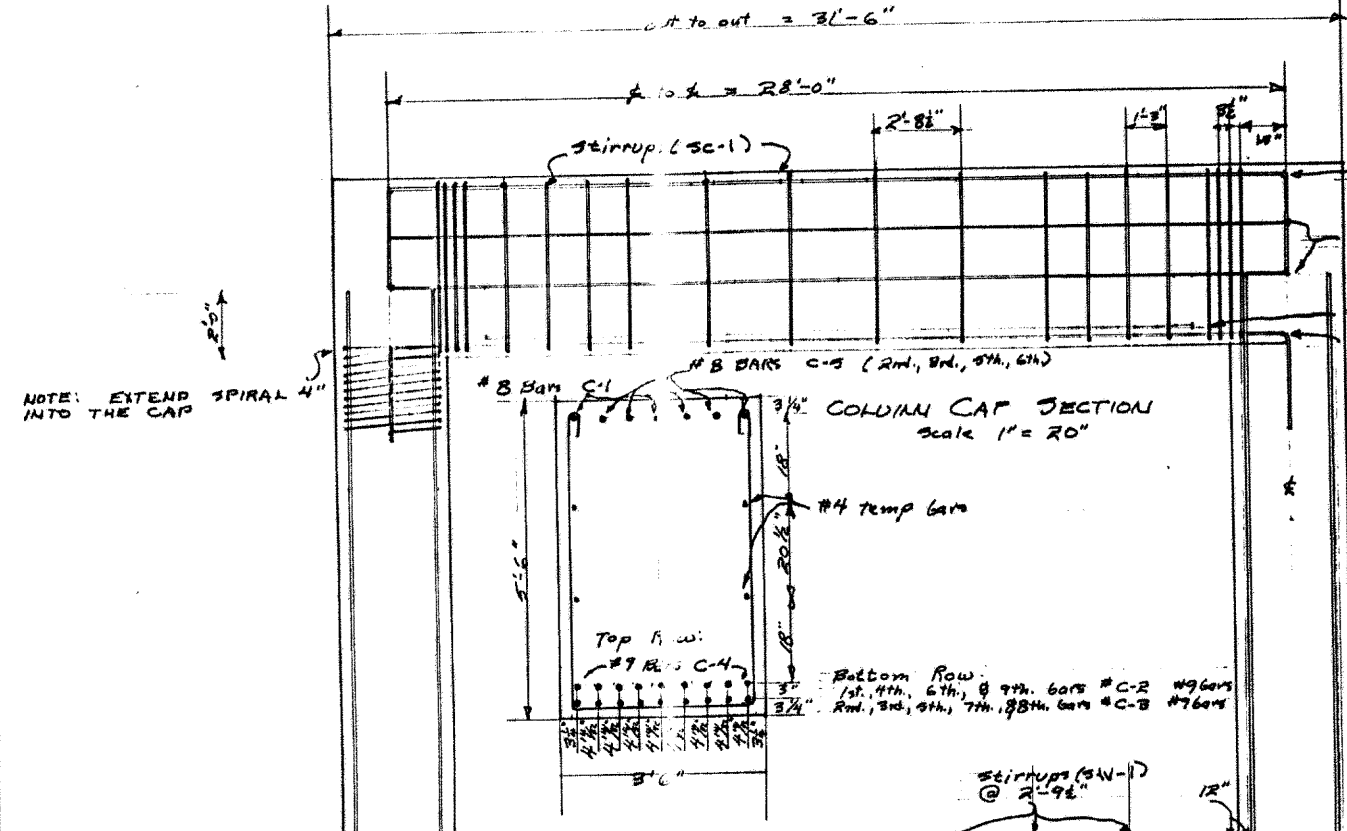 to out = 31'-6"
to = 28'-0"
2'-8½"
18"
stirrup. (SC-1)
2'-0"
NOTE: EXTEND SPIRAL 4"
INTO THE CAP
#8 BARS C-5 (2nd., 3rd., 5th., 6th)
#8 Bars C-1
3¼"
COLUMN CAP SECTION
Scale 1" = 20"
18"
#4 temp bars
20½"
5'-6"
18"
Top Row:
#9 C-4
3"
3¼"
Bottom Row:
1st., 4th., 6th., & 9th. bars #C-2 #9 bars
2nd., 3rd., 5th., 7th., & 8th. bars #C-3 #9 bars
3¼" 4½" 4½" 4½" 4½" 4½" 4½" 4½" 3¼"
3'6"
stirrups (SW-1)
@ 2'-9½"
12"